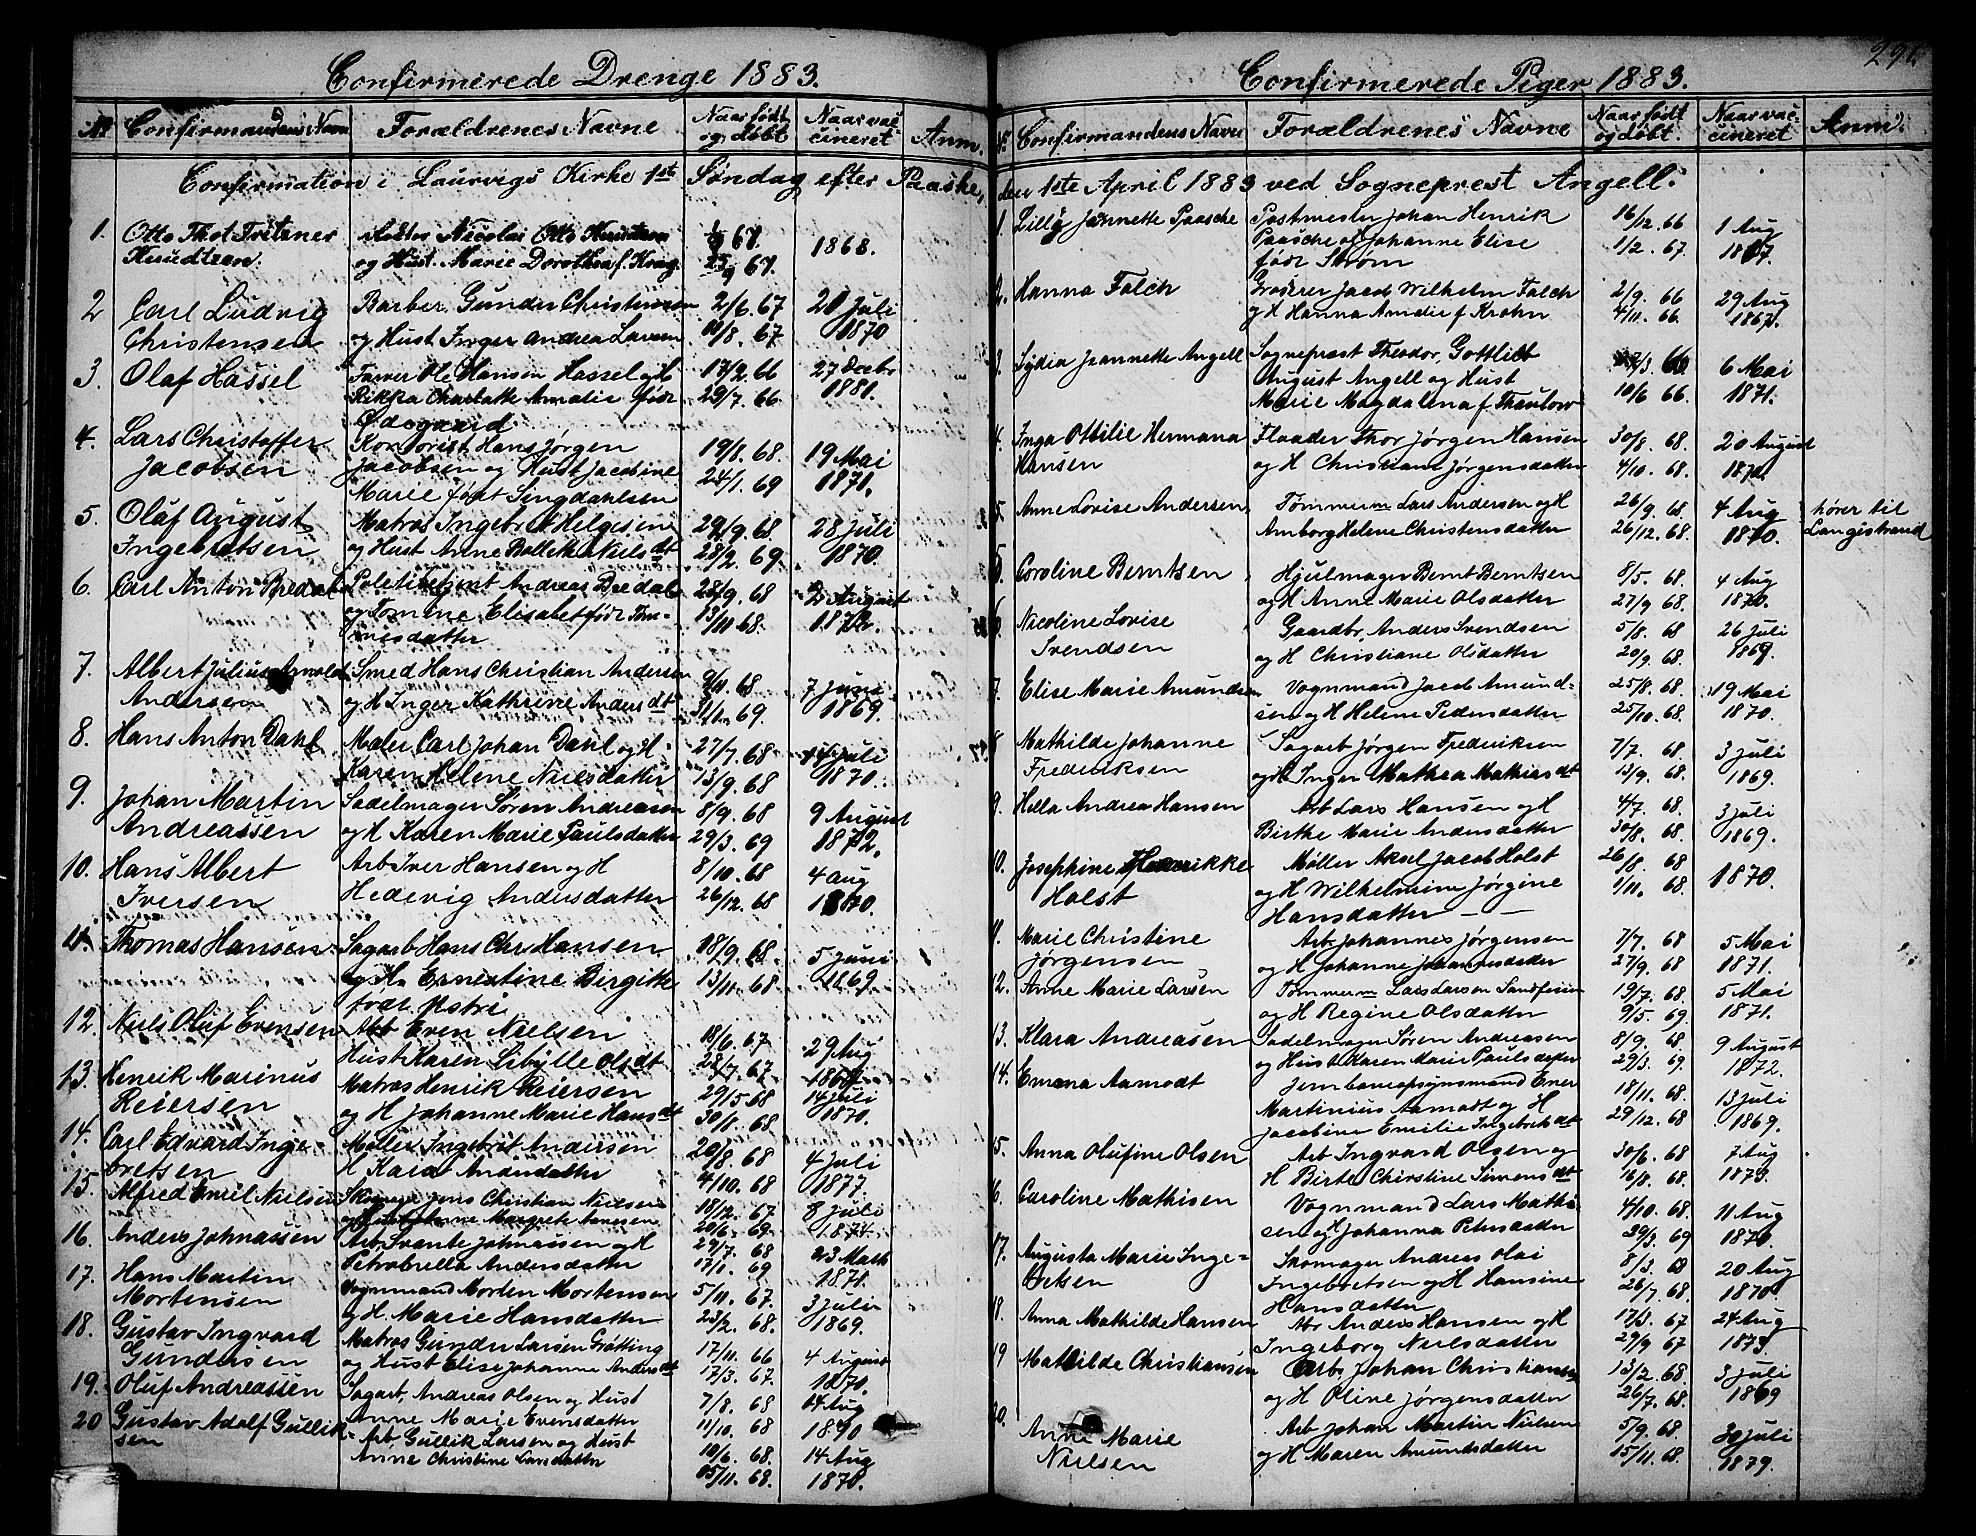 Confirmerede Drenge 1883.
No Confirmandens Navn Forældrenes Navne Naar født og døbt Naar vaccineret Anm.
Confirmation i Laurvigs Kirke 1ste Søndag efter Paaske,
1. Otto Thot Fritzner Nicolai Otto Knudtzon 67 1868.
Knudtzon. og Hust. Marie Dorothea f. Krag. 25/9 67.
2 Carl Ludvig Barber Gunder Christensen 2/6. 67 20 Juli
Christensen og Hust Inger Andrea Larsen 67 1870
3. Olaf Hassel Farver Ole Hansen Hassel og H 17/2. 66 27 Decbr
Rikka Charlotte Amalie født 29/7. 66 1881.
Ødegaard
4. Lars Christoffer Kontorist Hans Jørgen 19/8. 68. 19 Mai
Jacobsen Jacobsen og Hust Jacobine 24/1. 69 1871.
Marie født Singdahlsen
5. Olaf August Matros Ingebret Helgesen 29/9. 68 28 Juli
Ingebretsen og Hust Anne Bollette Niels dt 28/2. 69. 1870.
6. Carl Anton Bredal Politibetjent Andreas Bredal 28/9. 68 2 August
og Tomine Elisabet født Tom- 13/11 68. 1872.
misdatter
7. Albert Julius Arnold Smed Hans Christian Andersen 9/11. 68 7 Juni
Andersen og H Inger Kathrine Anders dt 69. 1869.
8. Hans Anton Dahl Maler Carl Johan Dahl og H 27/7. 68 14 Juli
Karen Helene Nielsdatter 13/9. 68 1870.
9. Johan Martin Sadelmager Søren Andreasen 8/9. 68 9 August
Andreassen og H Karen Marie Paulsdatter 29/3. 69 1872.
10. Hans Albert Arb Iver Hansen og H 8/10. 68 4 Aug
Iversen Hedevig Andersdatter 26/12. 68 1870.
11. Thomas Hansen Sagarb Hans Chr Hansen 18/9. 68. 5 Juni
og H. Ernestine Birgitte 13/11. 68 1869.
født Østri
12. Niels Oluf Evensen Arb Even Nielsen 18/6. 67. 29 Aug
Hust Karen Sibylle Ols dt 28/7. 67
13. Henrik Marinus Matros Henrik Reiersen 29/5 68 14 Juli
Reiersen og H Johanne Marie Hans dt 30/8. 68 1870.
14. Carl Edvard Inge- Møller Ingebret Andersen 20/8. 68 4 Juli
bretsen H Kara Andersdatter 4/10. 68 1877.
15. Alfred Emil Nielsen Jens Christian Nielsen 18/12. 67 8 Juli
Margrete 20/6. 69. 1874.
16. Anders Johnassen Arb. Svante Johnassen og H 29/7. 68 23 Mai
Petrobrella Andersdatter 17/1. 69 1871.
17. Hans Martin Vognmand Morten Mortensen 5/11. 67. 3 Juli
Mortensen og H. Marie Hansdatter 23/2. 68. 1869.
18. Gustav Ingvard Matros Gunder Larsen Grøtting 17/11. 66 4 August
Gundersen og Hust Elise Johanne Anders dt 17/3. 67. 1870.
19. Oluf Andreassen Sagarb. Andreas Olsen og Hust 7/8. 68 Aug
Anne Marie Evensdatter 11/10. 68 1890
20 Gustav Adolf Gullik- Arb. Gullik Larsen og Hust 10/6. 68. 14 Aug
sen Anne Christine Larsdatter 05/11. 68. 1870.
291.
Confirmerede Piger 1883.
No. Confirmandens Navn Forældrenes Navne Naar født og døbt. Naar vaccineret Anm.
den 1ste April 1883 ved Sogneprest Angell.
1. Lilly Jannette Paasche Postmester Johan Henrik 16/12. 66 1 Aug
Paasche og Johanne Elise 1/2. 67. 1867.
født Strøm
2. Hanna Falch Jacob Wilhelm Falch 2/9. 66 29 Aug
og H Hanna f. Krohn 4/11. 66. 1867.
3. Lydia Jeannette Angell Sogneprest Theodor Gottlieb 66 6 Mai
August Angell og Hust 10/6 66. 1871.
Marie Magdalena f Thaulow
4. Inga Ottilie Hermana Flaader Thor Jørgen Hansen 30/8. 68. 20 August
Hansen og H Christiane Jørgensdatter 4/10. 68. 1870.
5. Anne Lovise Andersen Tømmerm Lars Andersen og H 26/9. 68. 4 Aug hører til
Helene Christensdatter 26/12. 68. 1870. Langestrand
5. Caroline Berntsen Hjulmager Bernt Berntsen 8/5. 68. 4 Aug
og H Anne Marie Olsdatter 27/9 68. 1870.
6. Nicoline Lovise Gaardbr. Anders Svendsen 5/8. 68 26 Juli
Svendsen og H Christiane Olsdatter 20/9. 68. 1869.
7. Elise Marie Amundsen Vognmand Jacob Amund- 25/8. 68. 19 Mai
sen og H Helene Pedersdatter 25/10. 68. 1870.
8 Mathilde Johanne Sagarb Jørgen Frederiksen 7/7. 68 3 Juli
Frederiksen og H Inger Mathea Mathias dt 13/9. 68. 1869.
9. Hella Andrea Hansen Arb Lars Hansen og H 4/7. 68. 3 Juli
Birthe Marie Andersdatter 30/8. 68. 1869.
10. Josephine Henrikke Møller Aksel Jacob Holst 26/8. 68 1870.
Holst og H Wilhelmine Jørgine 1/11. 68.
Hansdatter — —
11. Marie Christine Arb. Johannes Jørgensen 7/7. 68 5 Mai
Jørgensen og H Johanne Johannesdatter 27/9. 68 1871.
12. Anne Marie Larsen Tømmerm Lars Larsen 19/7. 68 5 Mai
og H Regine Olsdatter 9/5. 69 1871.
13. Klara Andreasen Sadelmager Søren Andreasen 8/9. 68 9 August
og Hust Karen Marie Paulsdatter 29/3. 69. 1872.
14. Emma Aamodt Jernbaneopsynsmand Ener 18/11. 68. 13 Juli
Martinius Aamodt og H 29/12. 68 1869.
Jacobine Emilie Ingebrets dt
15. Anna Olufine Olsen Arb Ingvard Olsen og 30/6. 68 7 Aug
H Birte Christine Simens dt 16/8. 68 1873.
16. Caroline Mathisen Vognmand Lars Mathi- 4/10. 68. 11 Aug
sen og H Johanna Petersdatter 29/3. 69 1870.
17. Augusta Marie Inge- Skomager Andreas Olai 8/3. 68 20 Aug
bretsen Ingebretsen og H Hansine 26/7. 68. 1870.
Hansdatter
18. Anna Mathilde Hansen Arb Anders Hansen og H 17/3. 67 24 Aug
Ingeborg Nielsdatter 29/9 67 1873.
19 Mathilde Christiansen Arb. Johan Christiansen 13/2. 68. 3 Juli
og H Oline Jørgensdatter 26/7. 68. 1869
20. Anne Marie Arb Johan Martin Nielsen 5/9. 68. 30 Juli
Nielsen og H Maren Amundsdatter 15/11. 68. 1879.